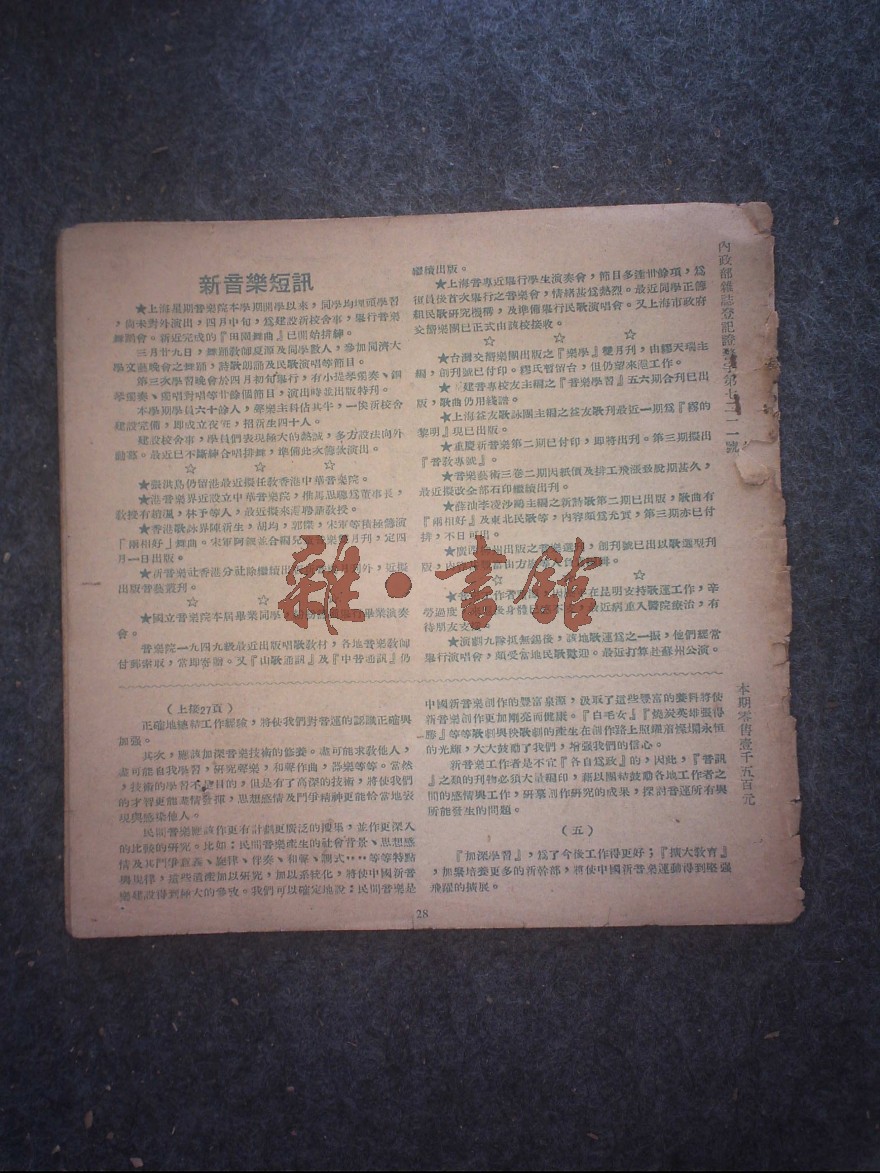 新音樂短訊
★上海星期音樂院本學期開學以來，同學均埋頭學習
，尚未對外演出，四月中旬，爲建設新校舍事，舉行音樂
舞蹈會。新近完成的『田園舞曲』已開始排練。
三月廿九日，舞蹈教師夏源及同學數人，參加同濟大
學文藝晚會之舞蹈，詩歌朗誦及民歌演唱等節目。
第三次學習晚會於四月初旬舉行，有小提琴獨奏、鋼
琴獨奏、獨唱對唱等廿餘個節目，演出時並出版特刊。
本學期學員六十餘人，聲樂主科佔其半，一俟新校舍
建設完備，即成立夜班，招新生四十人。
建設校舍事，學員們表現極大的熱誠，多方設法向外
勸募。最近已不斷練合唱排舞，準備此次籌款演出。
☆ ☆ ☆
★張洪島仍留港最近擬任教香港中華音樂院。
★港音樂界近設立中華音樂院，推馬思聰爲董事長，
教授有趙渢，林予等人，最近擬來滬聘請教授。
★香港歌詠界陳新生，胡均，郭傑，宋軍等積極籌演
「兩相好」舞曲。宋軍阿鏡並合編兒童音樂
月刊，定四
月一日出版。
★新音樂社香港分社除繼續出版
月刊外，近擬
出版音藝叢刊。
☆ ☆
★國立音樂院本屆畢業同學，
舉行畢業演奏
會。
音樂院一九四九級最近出版唱歌教材，各地音樂教師
付郵索取，當即寄贈。又『山歌通訊』及『中音通訊』仍
繼續出版。
★上海音專近舉行學生演奏會，節目多達廿餘項，爲
復員後首次舉行之音樂會，情緒甚爲熱烈。最近同學正籌
組民歌研究機構，及準備舉行民歌演唱會。又上海市政府
交響樂團已正式由該校接收。
☆ ☆ ☆
★台灣交響樂團出版之『樂學』雙月刊，由繆天瑞主
編，創刊號已付印。繆氏暫留台，但仍望來滬工作。
★ 建音專校友主編之『音樂學習』五六期合刊已出
版，歌曲仍用綫譜。
★上海益友歌詠團主編之益友歌刊最近一期爲『霧的
黎明』現已出版。
★重慶新音樂第二期已付印，即將出刊。第三期擬出
『音教專號』。
★音樂藝術三卷二期因紙價及排工飛漲致脫期甚久，
最近擬改全部石印繼續出刊。
★薛汕李凌沙鷗主編之新詩歌第二期已出版，歌曲有
『兩相好』及東北民歌等，內容頗爲充實，第三期亦已付
排，不日可出。
創刊號已出以歌選型刊
☆ ☆
在昆明支持歌運工作，辛
勞過度
後身體
最近病重入醫院療治，有
待朋友支
★演劇九隊抵無錫後，該地歌運爲之一振，他們經常
舉行演唱會，頗受當地民歌歡迎。最近打算赴蘇州公演。
內政部雜誌登記證
字第七二一一號
（上接27頁）
正確地總結工作經驗，將使我們對音運的認識正確與
加強。
其次，應該加深音樂技術的修養。盡可能求教他人，
盡可能自我學習，研究聲樂，和聲作曲，器樂等等。當然
，技術的學習不是目的，但是有了高深的技術，將使我們
的才智更能盡情發揮，思想感情及鬥爭精神更能恰當地表
現與感染他人。
民間音樂應該作更有計劃更廣泛的搜集，並作更深入
的比較的研究。比如：民間音樂產生的社會背景、思想感
情及其鬥爭意義、旋律、伴奏、和聲、調式‥‥等等特點
與規律，這些遺產加以研究，加以系統化，將使中國新音
樂建設得到極大的參攷。我們可以確定地說：民間音樂是
中國新音樂創作的豐富泉源，汲取了這些豐富的養料將使
新音樂創作更加剛亮而健康。『白毛女』『燒炭英雄張得
勝』等等歌劇與秧歌劇的產生在創作路上照耀着燦爛永恒
的光輝，大大鼓勵了我們，增强我們的信心。
新音樂工作者是不宜『各自爲政』的，因此，『音訊
』之類的刊物必須大量編印，藉以團結鼓勵各地工作者之
間的感情與工作，研摹創作研究的成果，探討音運所有與
所能發生的問題。
（五）
『加深學習』，爲了今後工作得更好；『擴大教育』
，加緊培養更多的新幹部，將使中國新音樂運動得到堅強
飛躍的擴展。
本期零售壹千五百元
28
雜·書館